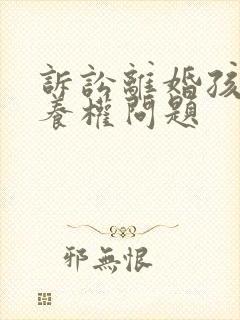 訴訟離婚孩
養權問題
邪無恨